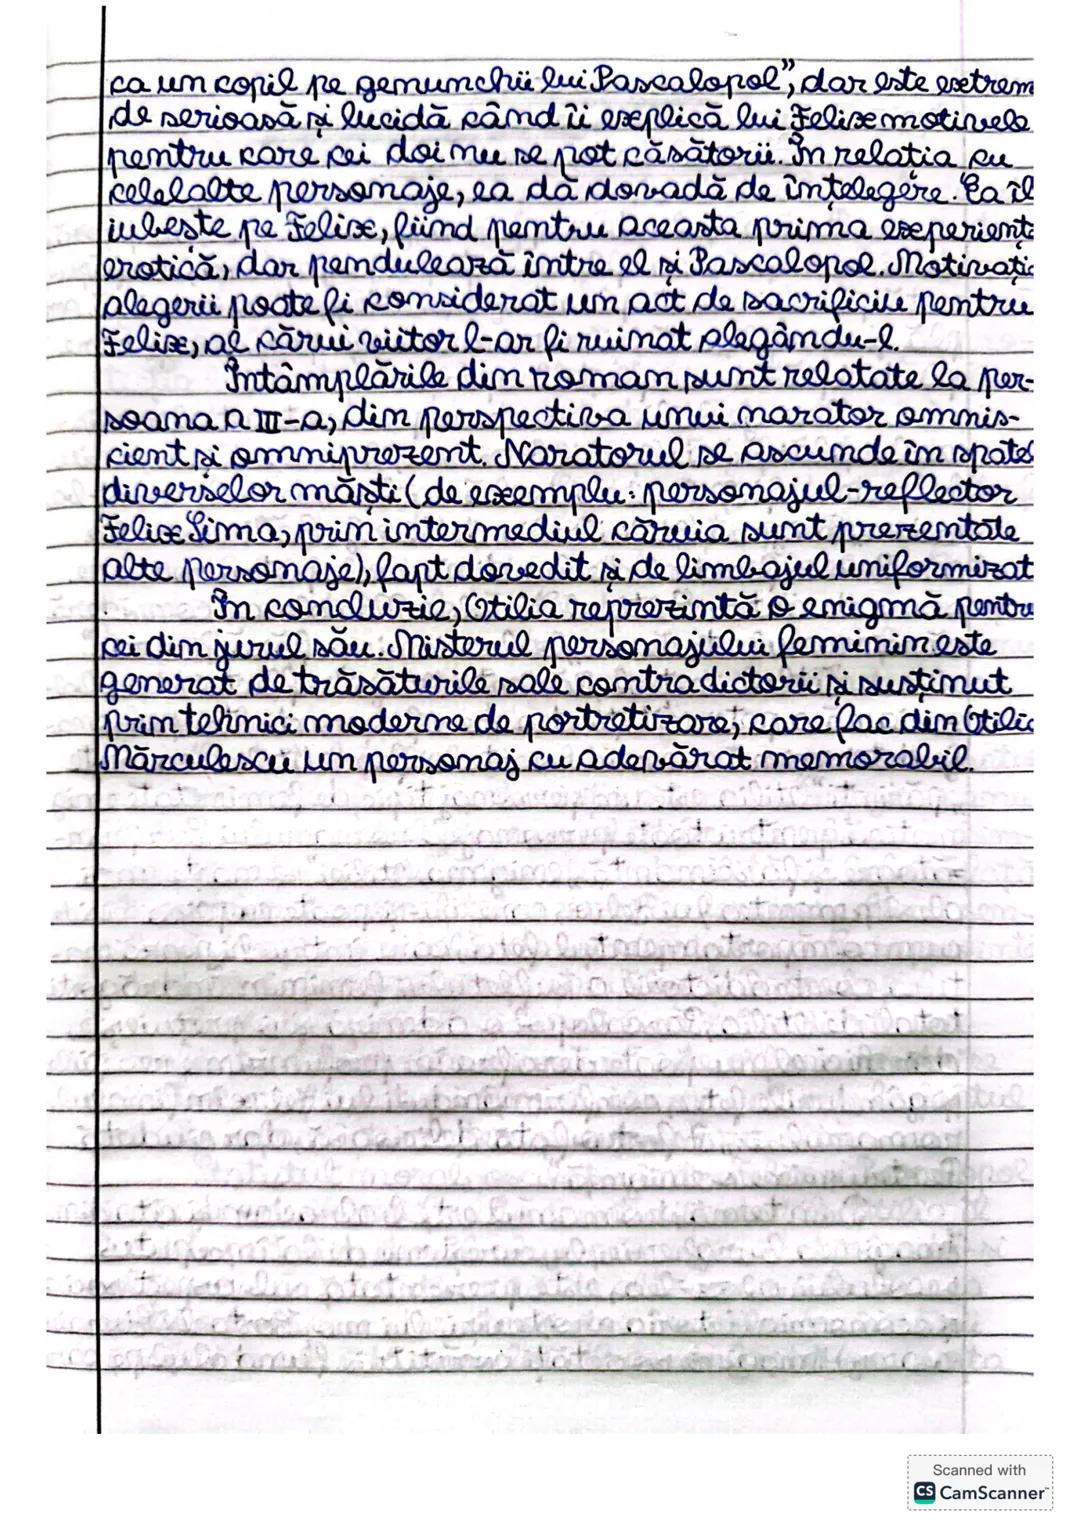 ca un copil pe genunchii lui Pascalopol", dar este extrem
de serioasă și lucidă când îi explică lui Felix motivele
pentru care cei doi nu se pot căsătorii. În relația cu
celelalte personaje, ea dă dovadă de înțelegere. Ea îl
iubește pe Felix, fiind pentru aceasta prima experiență
erotică, dar pendulează între el și Pascalopol. Motivația
alegerii poate fi considerat un act de sacrificiu pentru
Felix, al cărui viitor l-ar fi ruinat alegându-l.
Întâmplările din roman sunt relatate la per-
soana a III-a, din perspectiva unui narator omnis-
cient și omniprezent. Naratorul se ascunde în spatele
diverselor măști (de exemplu: personajul-reflector
Felix Sima, prin intermediul căruia sunt prezentate
alte personaje), fapt dovedit și de limbajul uniformizat
În concluzie, Otilia reprezintă o enigmă pentru
cei din jurul său. Misterul personajului feminin este
generat de trăsăturile sale contradictorii și susținut
prin tehnici moderne de portretizare, care fac din Otilia
Mărculescu un personaj cu adevărat memorabil.
Scanned with
CS CamScanner